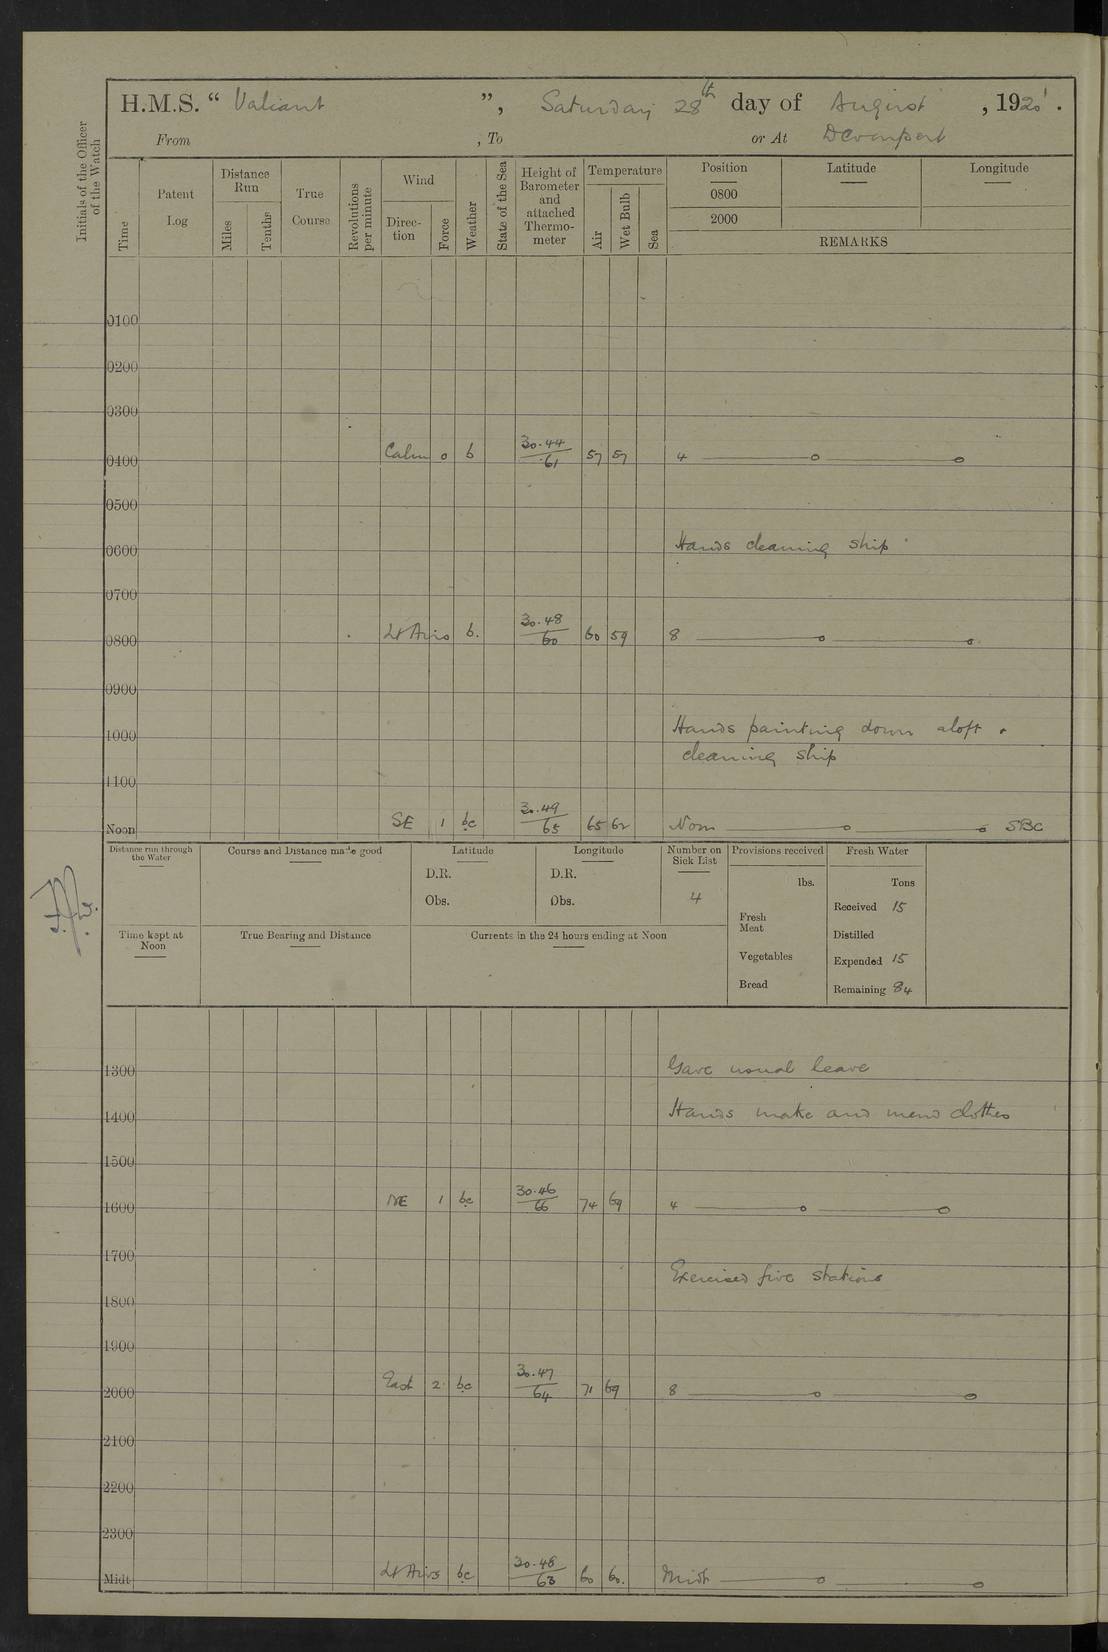 H.M.S. “ Valiant ”, Saturday 28th day of August , 1920 .
From , To or At Devonport
Initials of the Officer of the Watch
Time
Patent Log
Distance Run
Miles
Tenths
True Course
Revolutions per minute
Wind
Direc-tion
Force
Weather
State of the Sea
Height of Barometer and attached Thermo-meter
Temperature
Air
Wet Bulb
Sea
Position Latitude Longitude
0800
2000
REMARKS
0100
0200
0300
0400 Calm 0 b 30.44/61 57 57 4
0500
0600 Hands cleaning ship
0700
0800 Lt Airs b. 30.48/60 60 59 8
0900
1000 Hands painting down aloft
cleaning ship
1100
Noon SE 1 bc 30.49/65 65 62 Noon SBC
Distance run through the Water
Course and Distance made good
Latitude
D.R.
Obs.
Longitude
D.R.
Obs.
Number on Sick List
4
Provisions received
lbs.
Fresh Meat
Vegetables
Bread
Fresh Water
Tons
Received 15
Distilled
Expended 15
Remaining 84
Time kept at Noon
True Bearing and Distance
Currents in the 24 hours ending at Noon
1300 Gave usual leave
1400 Hands make and mend clothes
1500
1600 NE 1 bc 30.46/66 74 69 4
1700
Exercised fire stations
1800
1900
2000 East 2 bc 30.47/64 71 69 8
2100
2200
2300
Midt Lt Airs bc 30.48/63 60 60. Midt